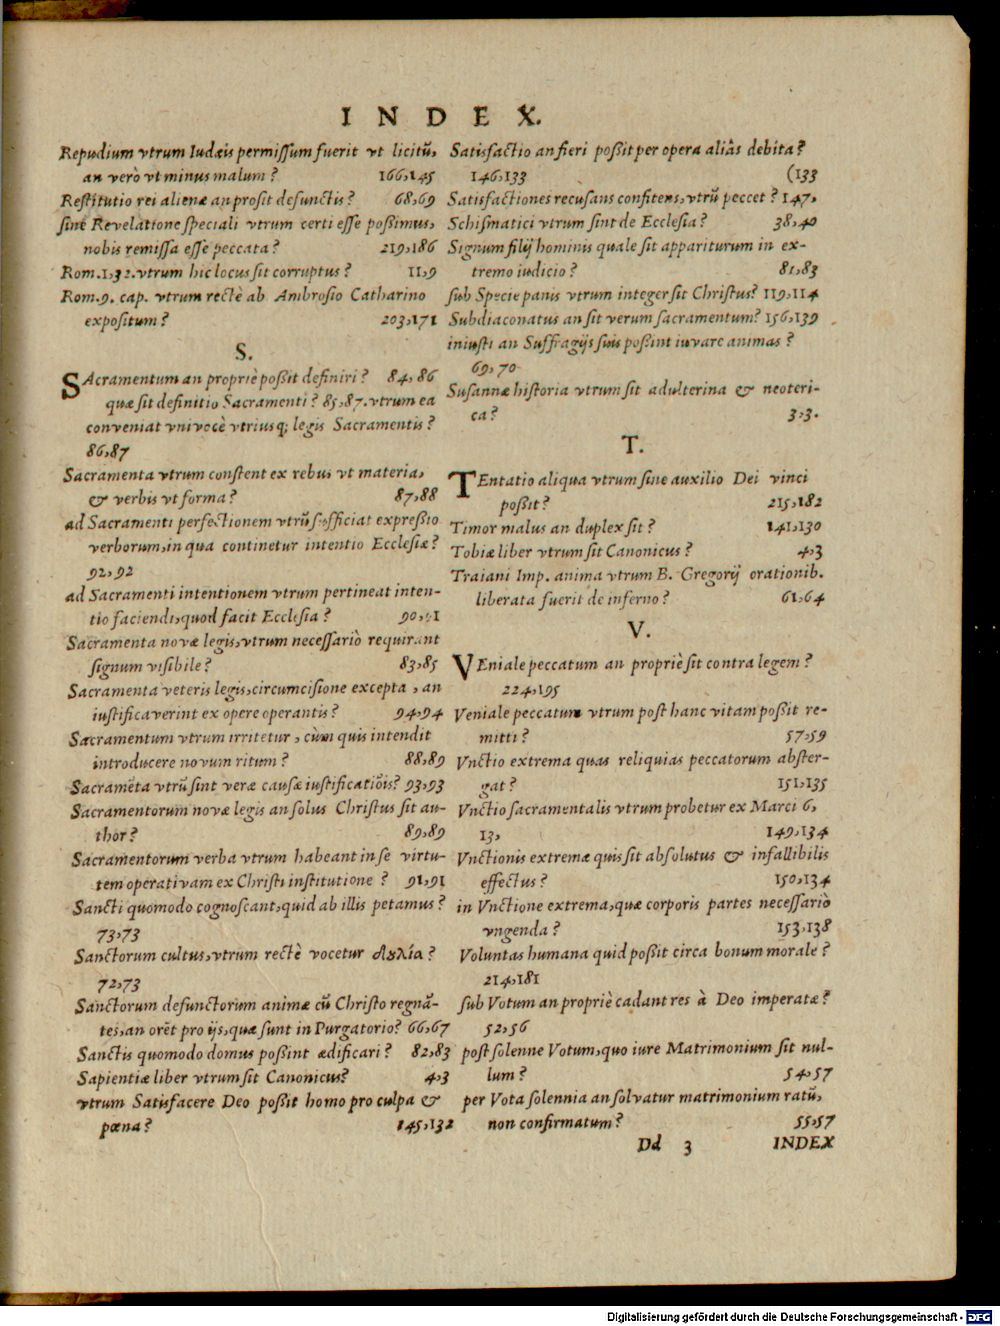 INDEX.
Repudium vtrum Iudæis permiſſum fuerit vt licitũ,
an verò vt minus malum? 166,145
Reſtitutio rei alienæ an proſit defunctis? 68,69
ſine Reuelatione ſpeciali vtrum certi eſſe poßimus,
nobis remiſſa eſſe peccata? 219,186
Rom.1,32.vtrum hic locus ſit corruptus? 11,9
Rom.9. cap. vtrum rectè ab Ambroſio Catharino
expoſitum? 203,171
S.
SAcramentum an propriè poßit definiri? 84,86
quæ ſit definitio Sacramenti? 85,87.vtrum ea
conueniat vniuocè vtriusq; legis Sacramentis?
86,87
Sacramenta vtrum conſtent ex rebus vt materia,
& verbis vt forma? 87,88
ad Sacramenti perfectionem vtrũ ſufficiat expreßio
verborum,in qua continetur intentio Eccleſiæ?
92,92
ad Sacramenti intentionem vtrum pertineat inten-
tio faciendi,quod facit Eccleſia? 90,91
Sacramenta nouæ legis,vtrum neceſſariò requirant
ſignum viſibile? 83,85
Sacramenta veteris legis,circumciſione excepta, an
iuſtificauerint ex opere operantis? 94,94
Sacramentum vtrum irritetur, cùm quis intendit
introducere nouum ritum? 88,89
Sacramẽta vtrũ ſint veræ cauſæ iuſtificatiõis? 93,93
Sacramentorum nouæ legis an ſolus Chriſtus ſit au-
thor? 89,89
Sacramentorum verba vtrum habeant in ſe virtu-
tem operatiuam ex Chriſti inſtitutione? 91,91
Sancti quomodo cognoſcant,quid ab illis petamus?
73,73
Sanctorum cultus,vtrum rectè vocetur δουλία?
72,73
Sanctorum defunctorum animæ cũ Chriſto regnã-
tes,an orẽt pro ijs,quæ ſunt in Purgatorio? 66,67
Sanctis quomodo domus poßint ædificari? 82,83
Sapientiæ liber vtrum ſit Canonicus? 4,3
vtrum Satisfacere Deo poßit homo pro culpa &
pœna? 145,132
Satisfactio an fieri poßit per opera aliâs debita?
146,133 (133
Satisfactiones recuſans confitens,vtrũ peccet? 147,
Schiſmatici vtrum ſint de Eccleſia? 38,40
Signum filij hominis quale ſit appariturum in ex-
tremo iudicio? 81,83
ſub Specie panis vtrum integer ſit Chriſtus? 119,114
Subdiaconatus an ſit verum ſacramentum? 156,139
iniuſti an Suffragijs ſuis poßint iuuare animas?
69,70
Suſannæ hiſtoria vtrum ſit adulterina & neoteri-
ca? 3,3.
T.
TEntatio aliqua vtrum ſine auxilio Dei vinci
poßit? 215,182
Timor malus an duplex ſit? 141,130
Tobiæ liber vtrum ſit Canonicus? 4,3
Traiani Imp. anima vtrum B. Gregorij orationib.
liberata fuerit de inferno? 61,64
V.
VEniale peccatum an propriè ſit contra legem?
224,195
Veniale peccatum vtrum poſt hanc vitam poßit re-
mitti? 57,59
Vnctio extrema quas reliquias peccatorum abſter-
gat? 151,135
Vnctio ſacramentalis vtrum probetur ex Marci 6,
13, 149,134
Vnctionis extremæ quis ſit abſolutus & infallibilis
effectus? 150,134
in Vnctione extrema,quæ corporis partes neceſſariò
vngenda? 153,138
Voluntas humana quid poßit circa bonum morale?
214,181
ſub Votum an propriè cadant res à Deo imperatæ?
52,56
poſt ſolenne Votum,quo iure Matrimonium ſit nul-
lum? 54,57
per Vota ſolennia an ſoluatur matrimonium ratũ,
non confirmatum? 55,57
Dd 3 INDEX
Digitalisierung gefördert durch die Deutsche Forschungsgemeinschaft - DFG